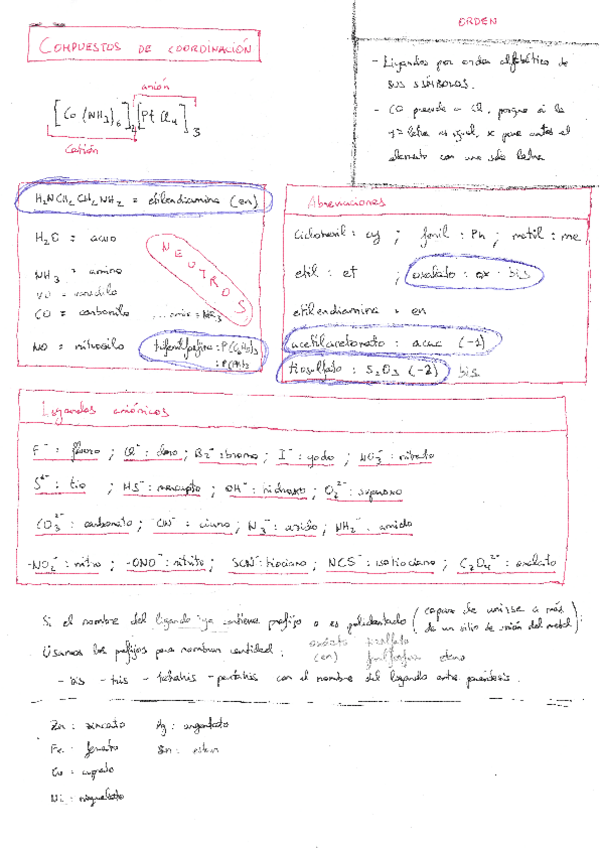 COMPUESTOS DE COORDINACIÓN
anión
[Co(NH3)6]2[PtCl4]3
Catión
ORDEN
- Ligandos por orden alfabético de
sus símbolos.
- CO precede a Cl, porque si la
1ª letra es igual, se pone antes el
elemento con una sola letra
H2NCH2CH2NH2 = etilendiamina (en)
H2O = acuo
NH3 = amino
CO = carbonilo
NO = nitrosilo
NEUTROS
trifenilfosfina: P(C6H5)3
: P(Ph)3
Abreviaciones
ciclohexil: cy ; fenil: Ph ; metil: me
etil: et ; oxalato: ox - bis
etilendiamina = en
acetilacetonato: acac (-1)
tiosulfato: S2O3 (-2) bis
Ligandos aniónicos
F⁻: fluoro ; Cl⁻: cloro ; Br⁻: bromo ; I⁻: yodo ; NO3⁻: nitrato
S²⁻: tio ; HS⁻: mercapto ; OH⁻: hidroxo ; O2²⁻: 
CO3²⁻: carbonato ; CN⁻: ciano ; N3⁻: azido ; NH2⁻: amido
-NO2⁻: nitro ; -ONO⁻: nitrito ; SCN⁻: tiociano ; NCS⁻: isotiociano ; C2O4²⁻: oxalato
Si el nombre del ligando ya contiene prefijo o es polidentado (capaz de unirse a más
de un sitio de unión del metal):
Usamos los prefijos para nombrar cantidad: oxalato tiosulfato
(en) fenilfosfina
- bis - tris - tetrakis - pentakis con el nombre del ligando entre paréntesis.
Zn: zincato Ag: argentato
Fe: ferrato Sn: estan
Cu: cuprato
Ni: niquelato